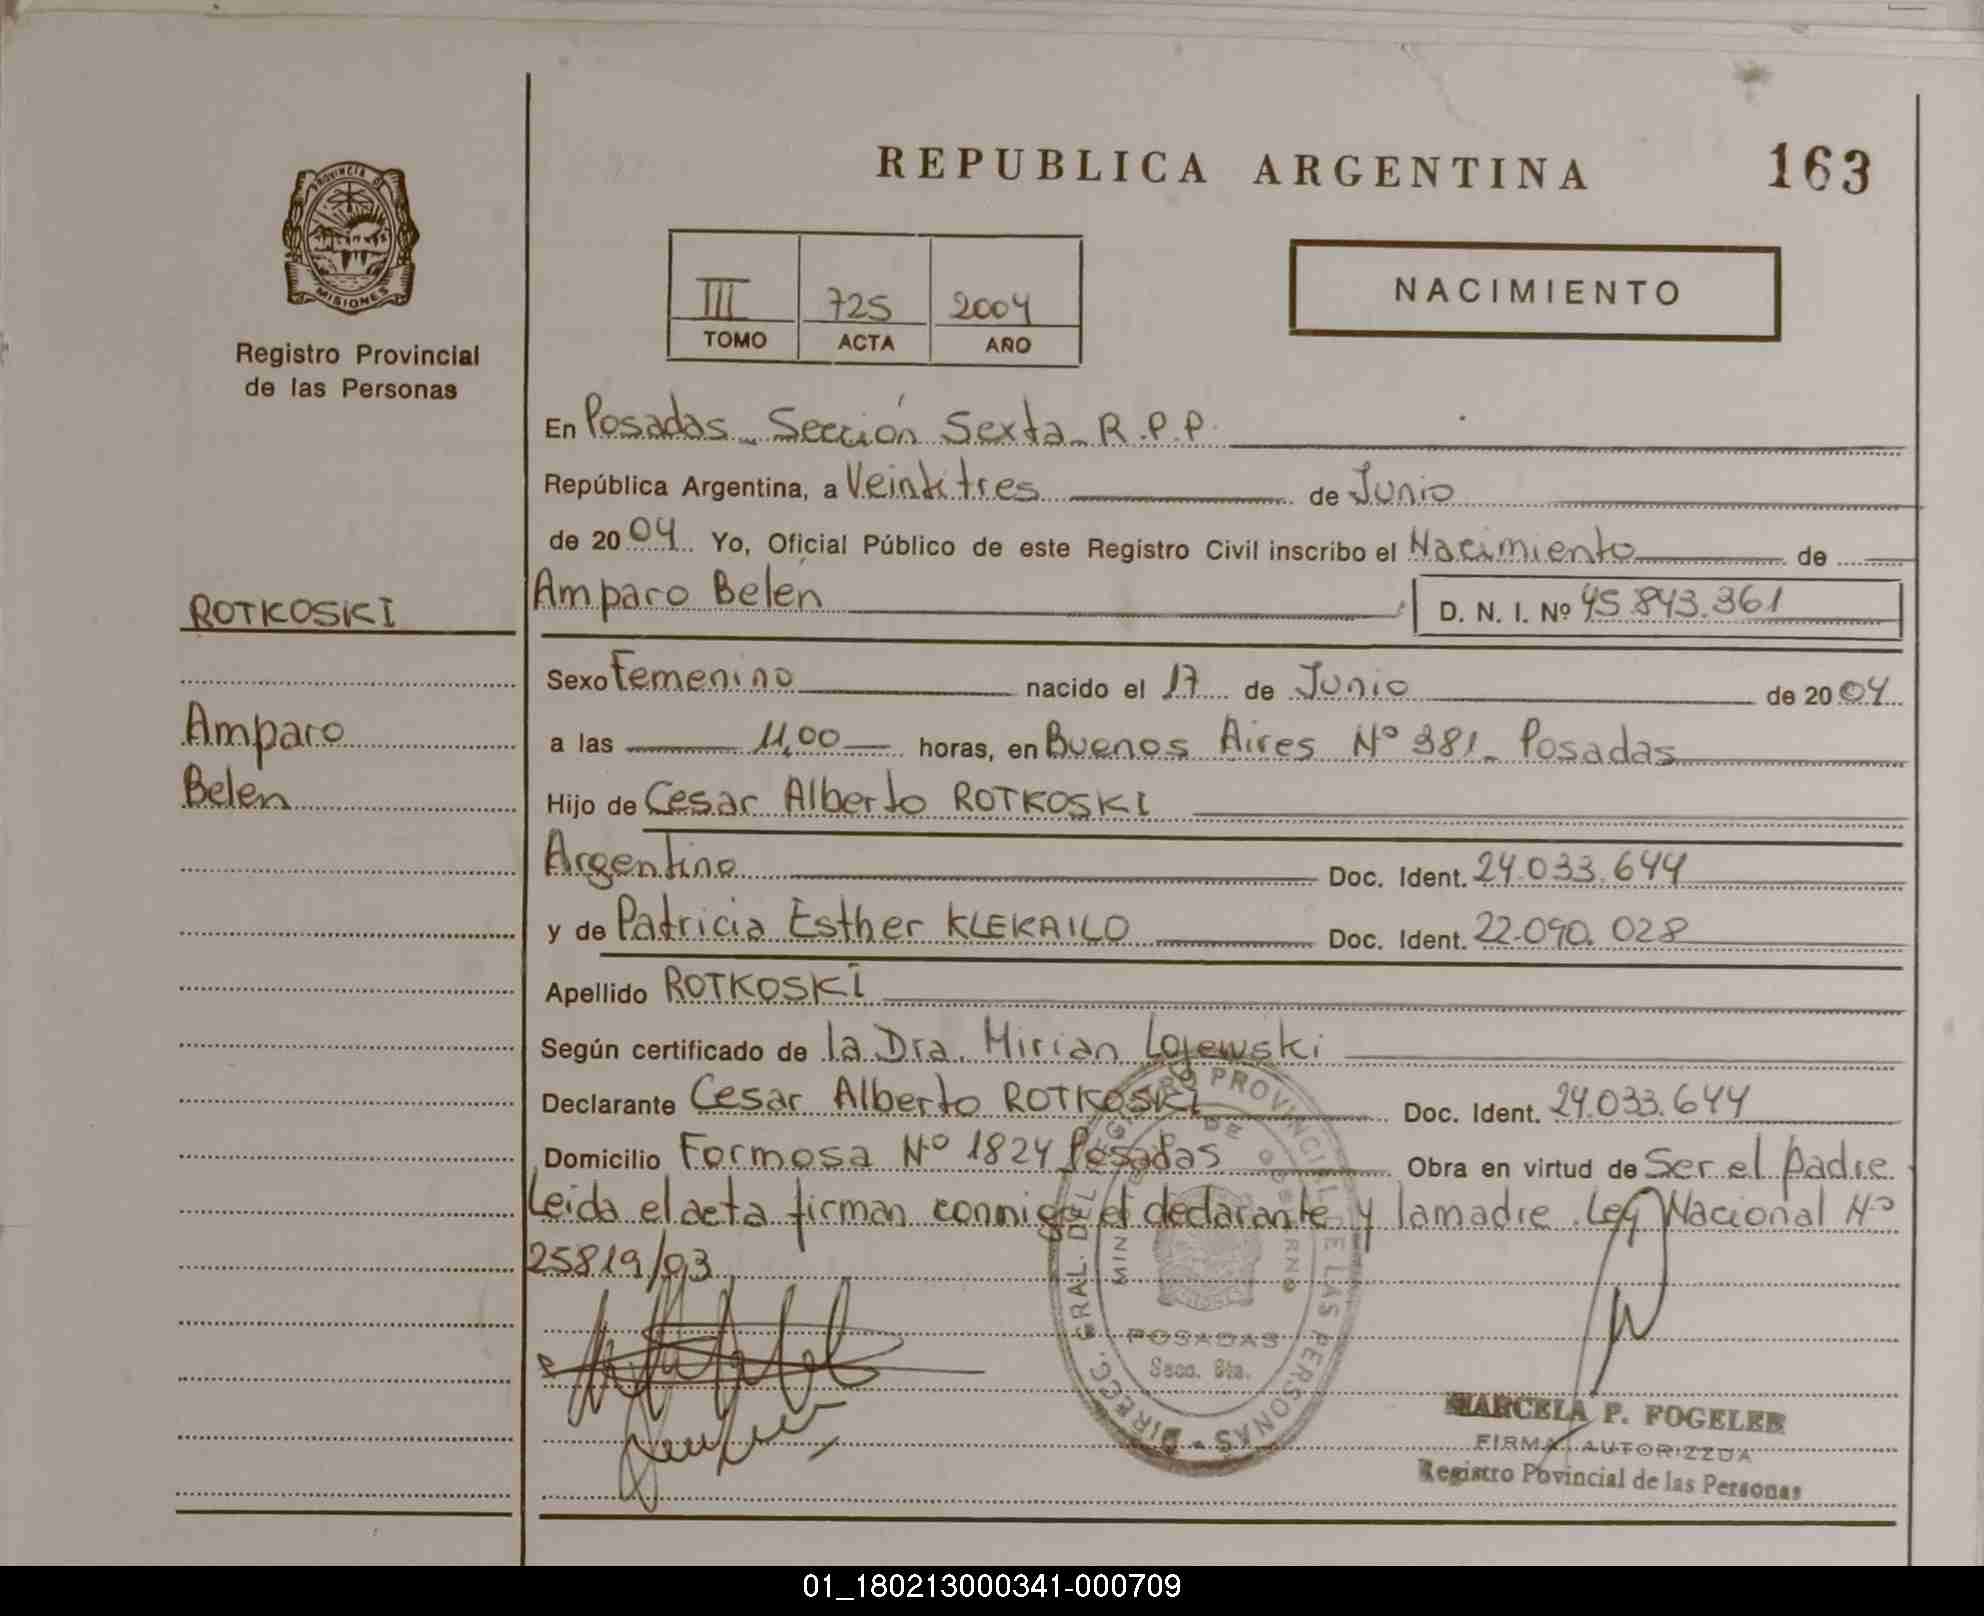 REPUBLICA ARGENTINA
163
PROVINCIA DE
MISIONES
Registro Provincial
de las Personas
III 725 2004
TOMO ACTA AÑO
NACIMIENTO
En Posadas - Sección Sexta - R.P.P.
República Argentina, a Veintitres de Junio
de 2004 Yo, Oficial Público de este Registro Civil inscribo el Nacimiento de
ROTKOSKI
Amparo Belén D. N. I. Nº 45.843.361
Sexo Femenino nacido el 17 de Junio de 2004
Amparo
a las 11,00 horas, en Buenos Aires Nº 381 - Posadas
Belen
Hijo de Cesar Alberto ROTKOSKI
Argentino Doc. Ident. 24.033.644
y de Patricia Esther KLEKAILO Doc. Ident. 22.090.028
Apellido ROTKOSKI
Según certificado de la Dra. Mirian Lojewski
Declarante Cesar Alberto ROTKOSKI Doc. Ident. 24.033.644
Domicilio Formosa Nº 1824 Posadas Obra en virtud de Ser el padre
Leida el acta firman conmigo el declarante y la madre. Ley Nacional Nº
25819/03
DIREC. GRAL. DEL REGISTRO PROVINCIAL DE LAS PERSONAS
MINISTERIO DE GOBIERNO
POSADAS
Secc. 6ta.
MARCELA P. FOGELER
FIRMA AUTORIZZDA
Registro Povincial de las Personas
01_180213000341-000709